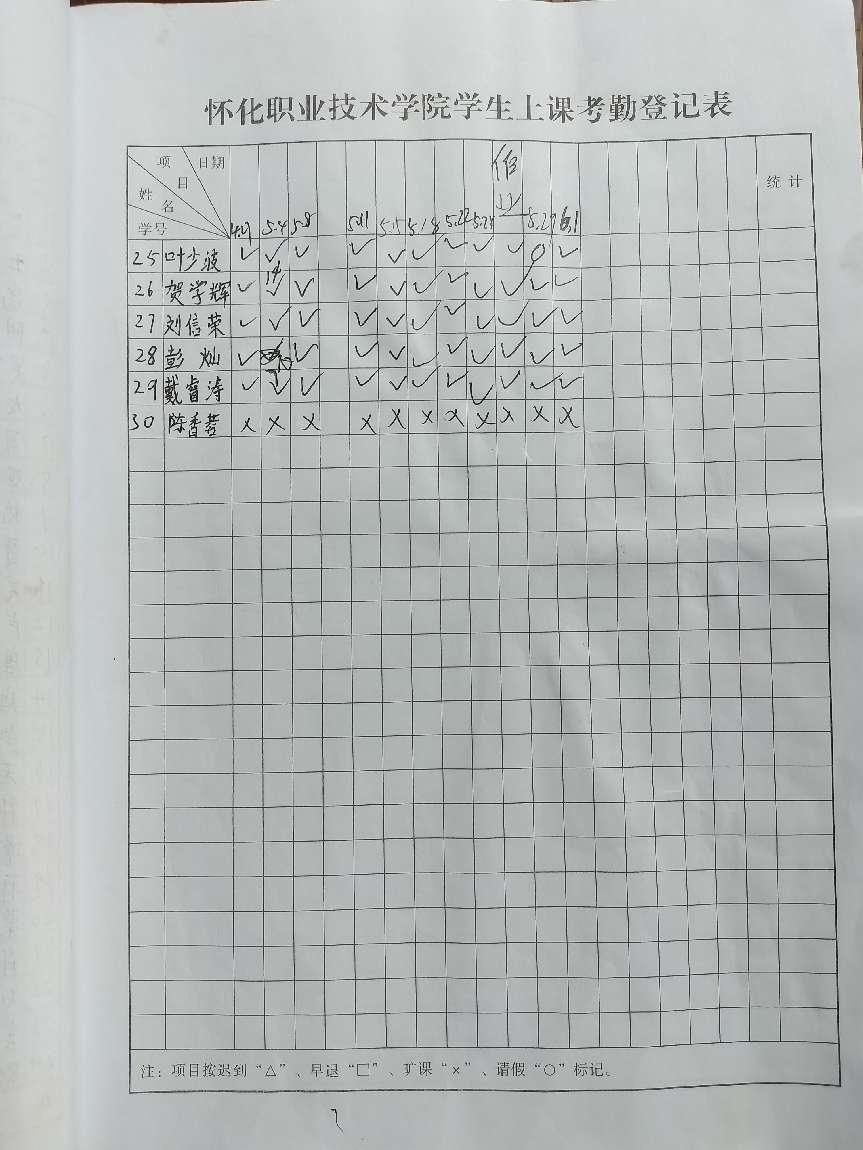 怀化职业技术学院学生上课考勤登记表
项目 日期 姓名 学号 5.4 5.8 5.11 5.15 5.18 5.22 5.29 6.1 统计
25 叶少波 ✓ ✓ ✓ ✓ ✓ ✓ ✓ ✓ ✓ ○ ✓
26 贺学辉 ✓ ✓ ✓ ✓ ✓ ✓ ✓ ✓ ✓ ✓ ✓
27 刘信荣 ✓ ✓ ✓ ✓ ✓ ✓ ✓ ✓ ✓ ✓ ✓
28 彭灿 ✓ ✓ ✓ ✓ ✓ ✓ ✓ ✓ ✓ ✓
29 戴睿涛 ✓ ✓ ✓ ✓ ✓ ✓ ✓ ✓ ✓ ✓ ✓
30 陈香 × × × × × × × × × × ×
注：项目按迟到“△”、早退“□”、旷课“×”、请假“○”标记。